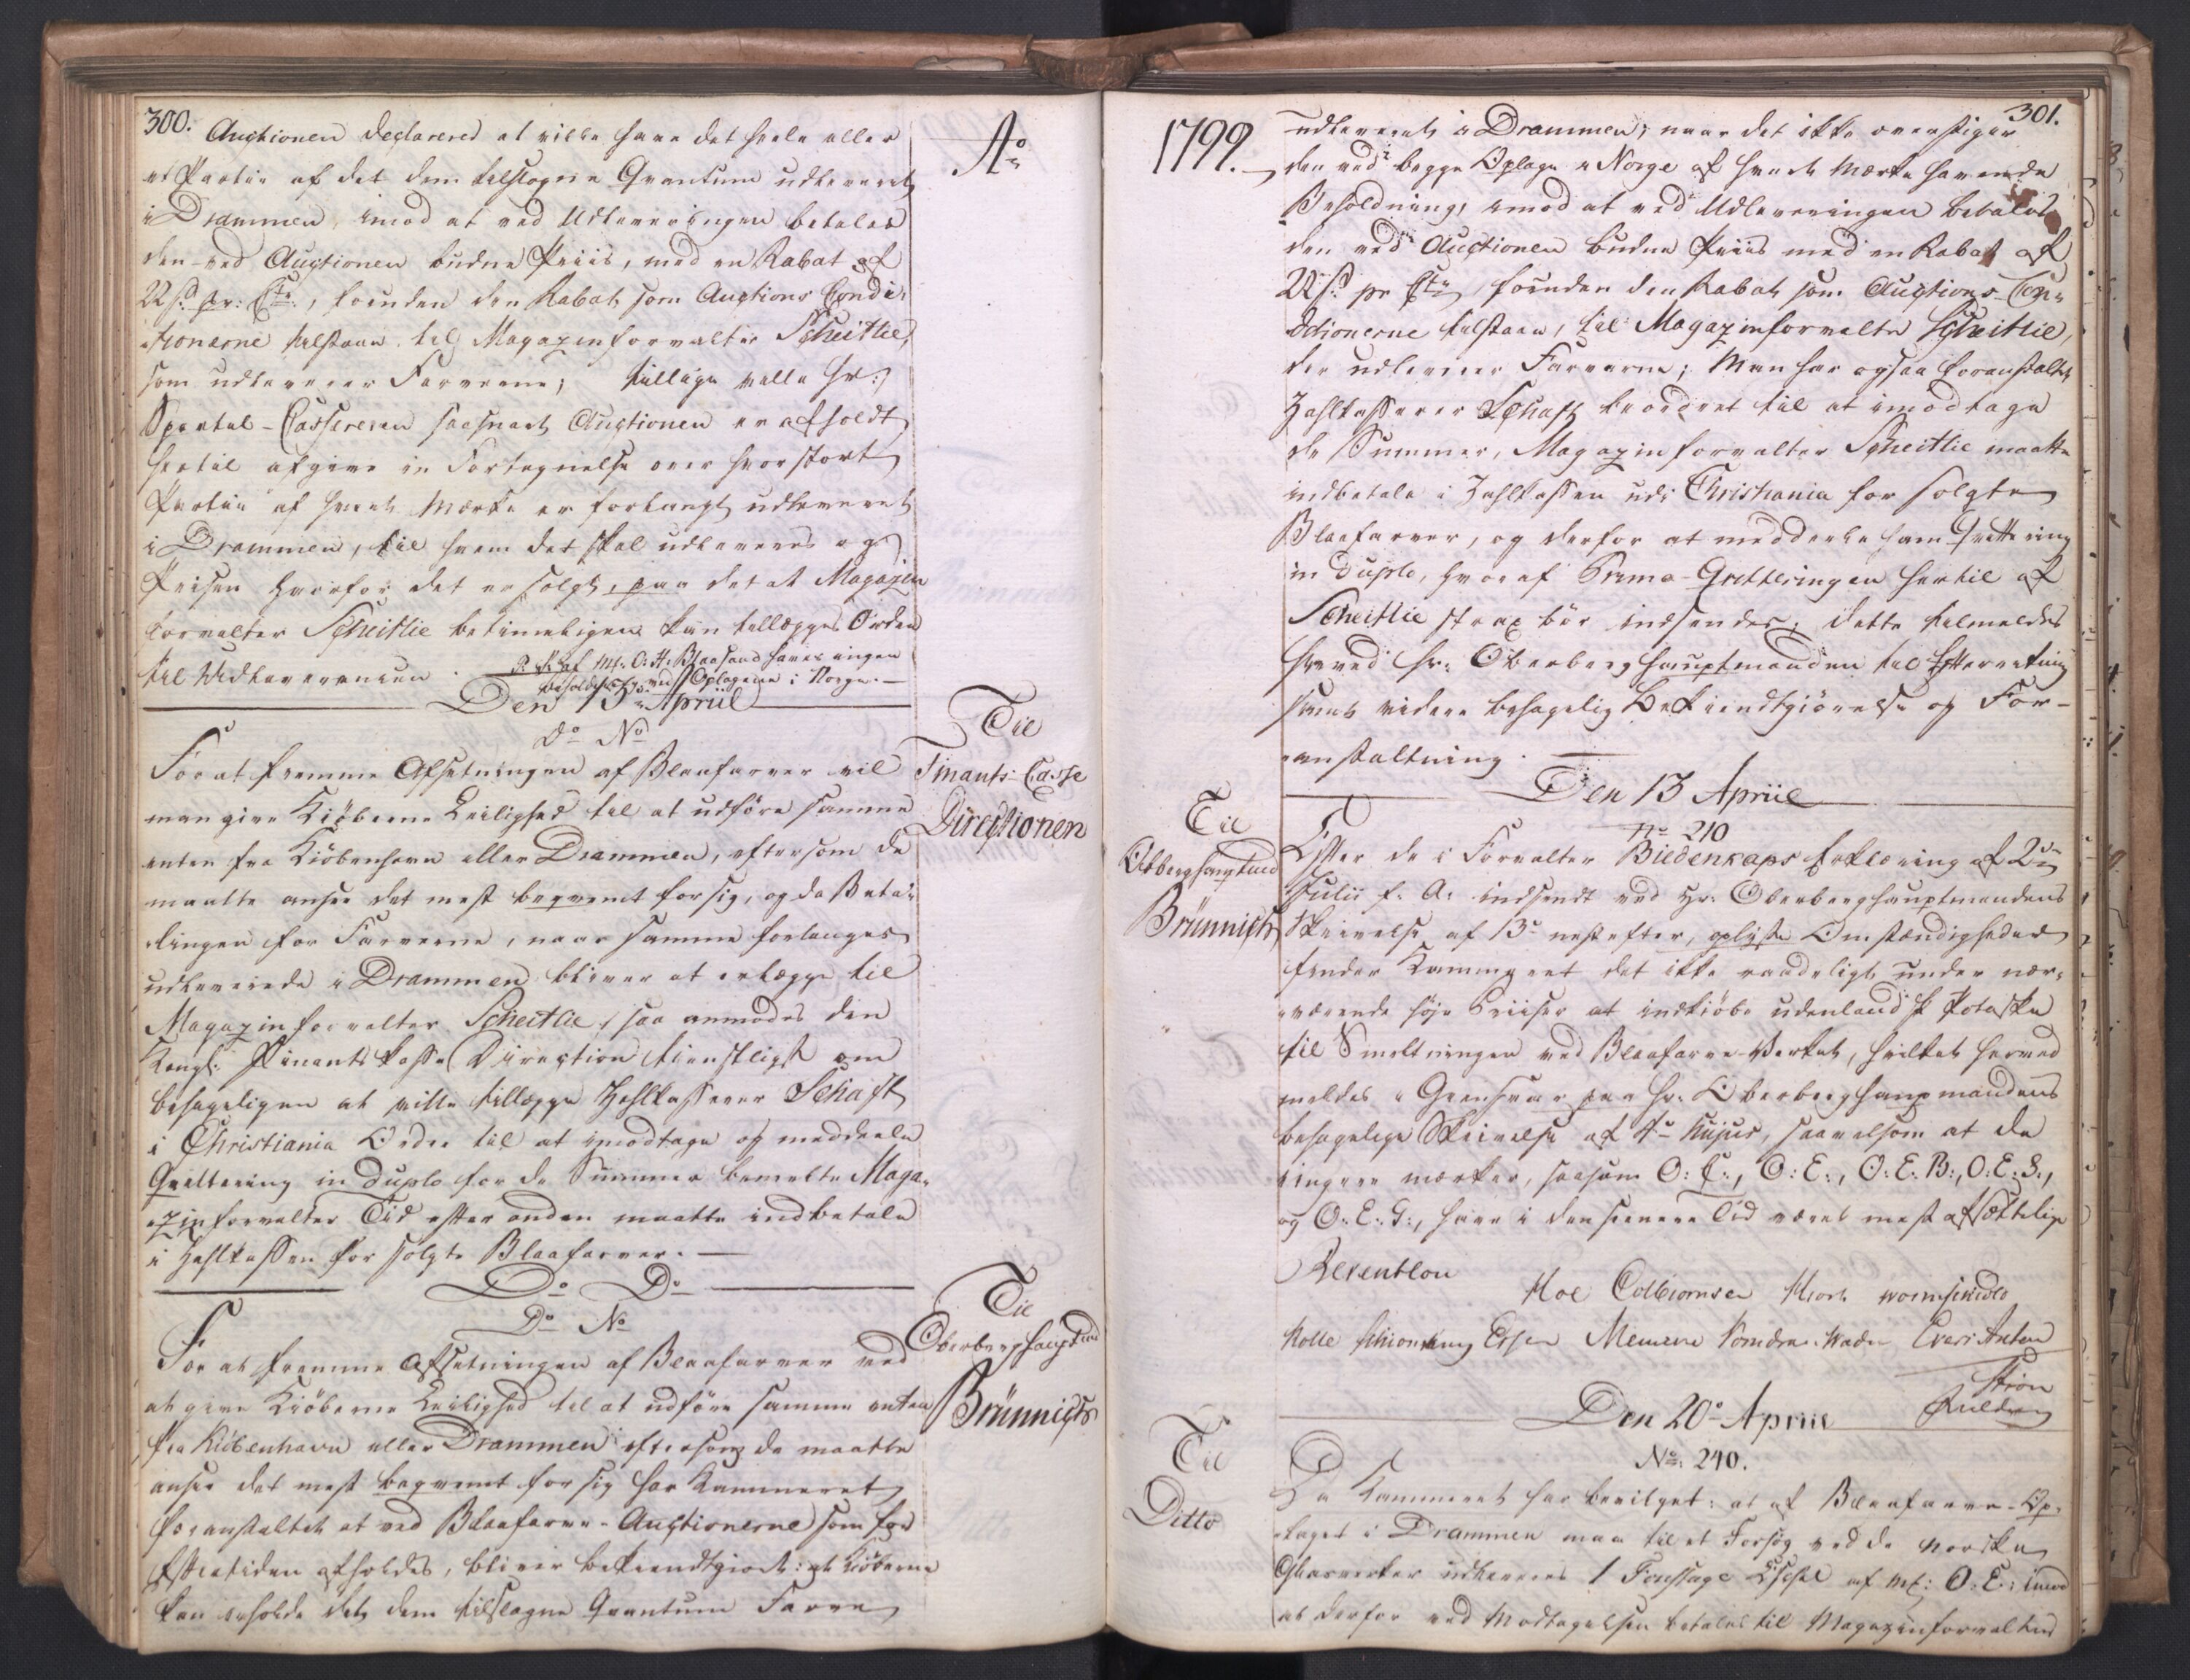 300.
Auctionen declarered at ville have det heele eller
et Partie af det dem tilslagne Qvantum udleveret
i Drammen, imod at ved Udleveringen betales
den ved Auctionen budne Priis, med en Rabat af
22 s. pr: Ctr:, foruden den Rabat som Auctions Condi-
tionerne tilstaaer, til Magazinforvalter Scheitlie,
som udleverer Farverne; tillige ville Hr:
Sportul-Cassereren saasnart Auctionen er afholdt
hertil afgive en Fortegnelse over hvor stort
Partie af hvert Mærke er forlangt udleveret
i Drammen, til hvem det skal udleveres og
Prisen hvorfor det er solgt, paa det at Magazin
forvalter Scheitlie betimeligen kan tillægges Ordre
til Udleverensen.
af Mk: O: H: Blaasand haves ingen
beholdning ved Oplagene i Norge.
Ao
Den 13 Apriil
Do No
Til
Finants-Casse
Directionen
For at fremme Afsetningen af Blaafarver vil
man give Kiöberne Leilighed til at udföre samme
enten fra Kiöbenhavn eller Drammen, eftersom de
maatte ansee det mest beqvemt for sig, og da Beta-
lingen for Farverne, naar samme forlanges
udleverede i Drammen bliver at erlægge til
Magazinforvalter Scheitlie, saa anmodes den
Kongl: Finantskasse Direction tienstligst om
behageligen at ville tillægge Zahlkasserer Schaft
i Christiania Ordre til at imodtage og meddeele
Qvittering in duplo for de Summer bemelte Maga-
zinforvalter Tid efter anden maatte indbetale
i Zahlkassen for solgte Blaafarver.
Do Do
Do No
Til
Oberberghauptmd
Brünnich
For at fremme Afsetningen af Blaafarver ved
at give Kiöberne Leilighed til at udföre samme enten
fra Kiöbenhavn eller Drammen eftersom de maatte
ansee det mest beqvemt for sig har Kammeret
foranstaltet at ved Blaafarve-Auctionerne som for
Eftertiden afholdes, bliver bekiendtgiort: at Kiöberne
kan erholde det dem tilslagne Qvantum Farve
1799.
301.
udleveret i Drammen, naar det ikke overstiger
den ved begge Oplage i Norge af hvert Mærke havende
Beholdning, imod at ved Udleveringen betales
den ved Auctionen budne Priis med en Rabat af
22 s. pr Ctr, foruden den Rabat som Auctions-Con-
ditionerne tilstaaer, til Magazinforvalter Scheitlie,
der udleverer Farverne; Man har ogsaa foranstaltet
Zahlkasserer Schaft beordret til at imodtage
de Summer, Magazinforvalter Scheitlie maatte
indbetale i Zahlkassen udi Christiania for solgte
Blaafarver, og derfor at meddeele ham Qvittering
in duplo, hvoraf Prima-Qvitteringen hertil af
Scheitlie strax bör indsendes; dette tilmeldes
herved Hr: Oberberghauptmanden til Efterretning
samt videre behagelig Bekiendtgiörelse og For-
anstaltning.
Den 13 Apriil
No 210
Til
Obberghauptmd
Brünnich
Efter de i Forvalter Biedenkaps Erklæring af 2den
Julii f. A. indsendt ved Hr: Oberberghauptmandens
Skrivelse af 13de nestefter, oplyste Omstændigheder
finder Kammeret det ikke raadeligt under nær-
værende höje Priiser at indkiöbe udenlandsk Potaske
til Smeltningen ved Blaafarve-Værket, hvilket herved
meldes i Giensvar paa Hr: Oberberghaupmandens
behagelige Skrivelse af 4de hujus, saavelsom at de
ringere mærker, saasom O: C:, O: E:, O: E. B:, O: E. S.,
og O: E: G:, have i den seenere Tid været mest afsættelige
Reventlou
Moe Colbiornsen Hiort Wormskiold
Den 20de Apriil
No. 240.
Til
Ditto
Da Kammeret har bevilget: at af Blaafarve-Op-
laget i Drammen maa til et Forsög ved de norske
Glasværker udleveres 1 Foustage Eschel af Mk: O: E: imod
at derfor ved Modtagelsen betales til Magazinforvalter